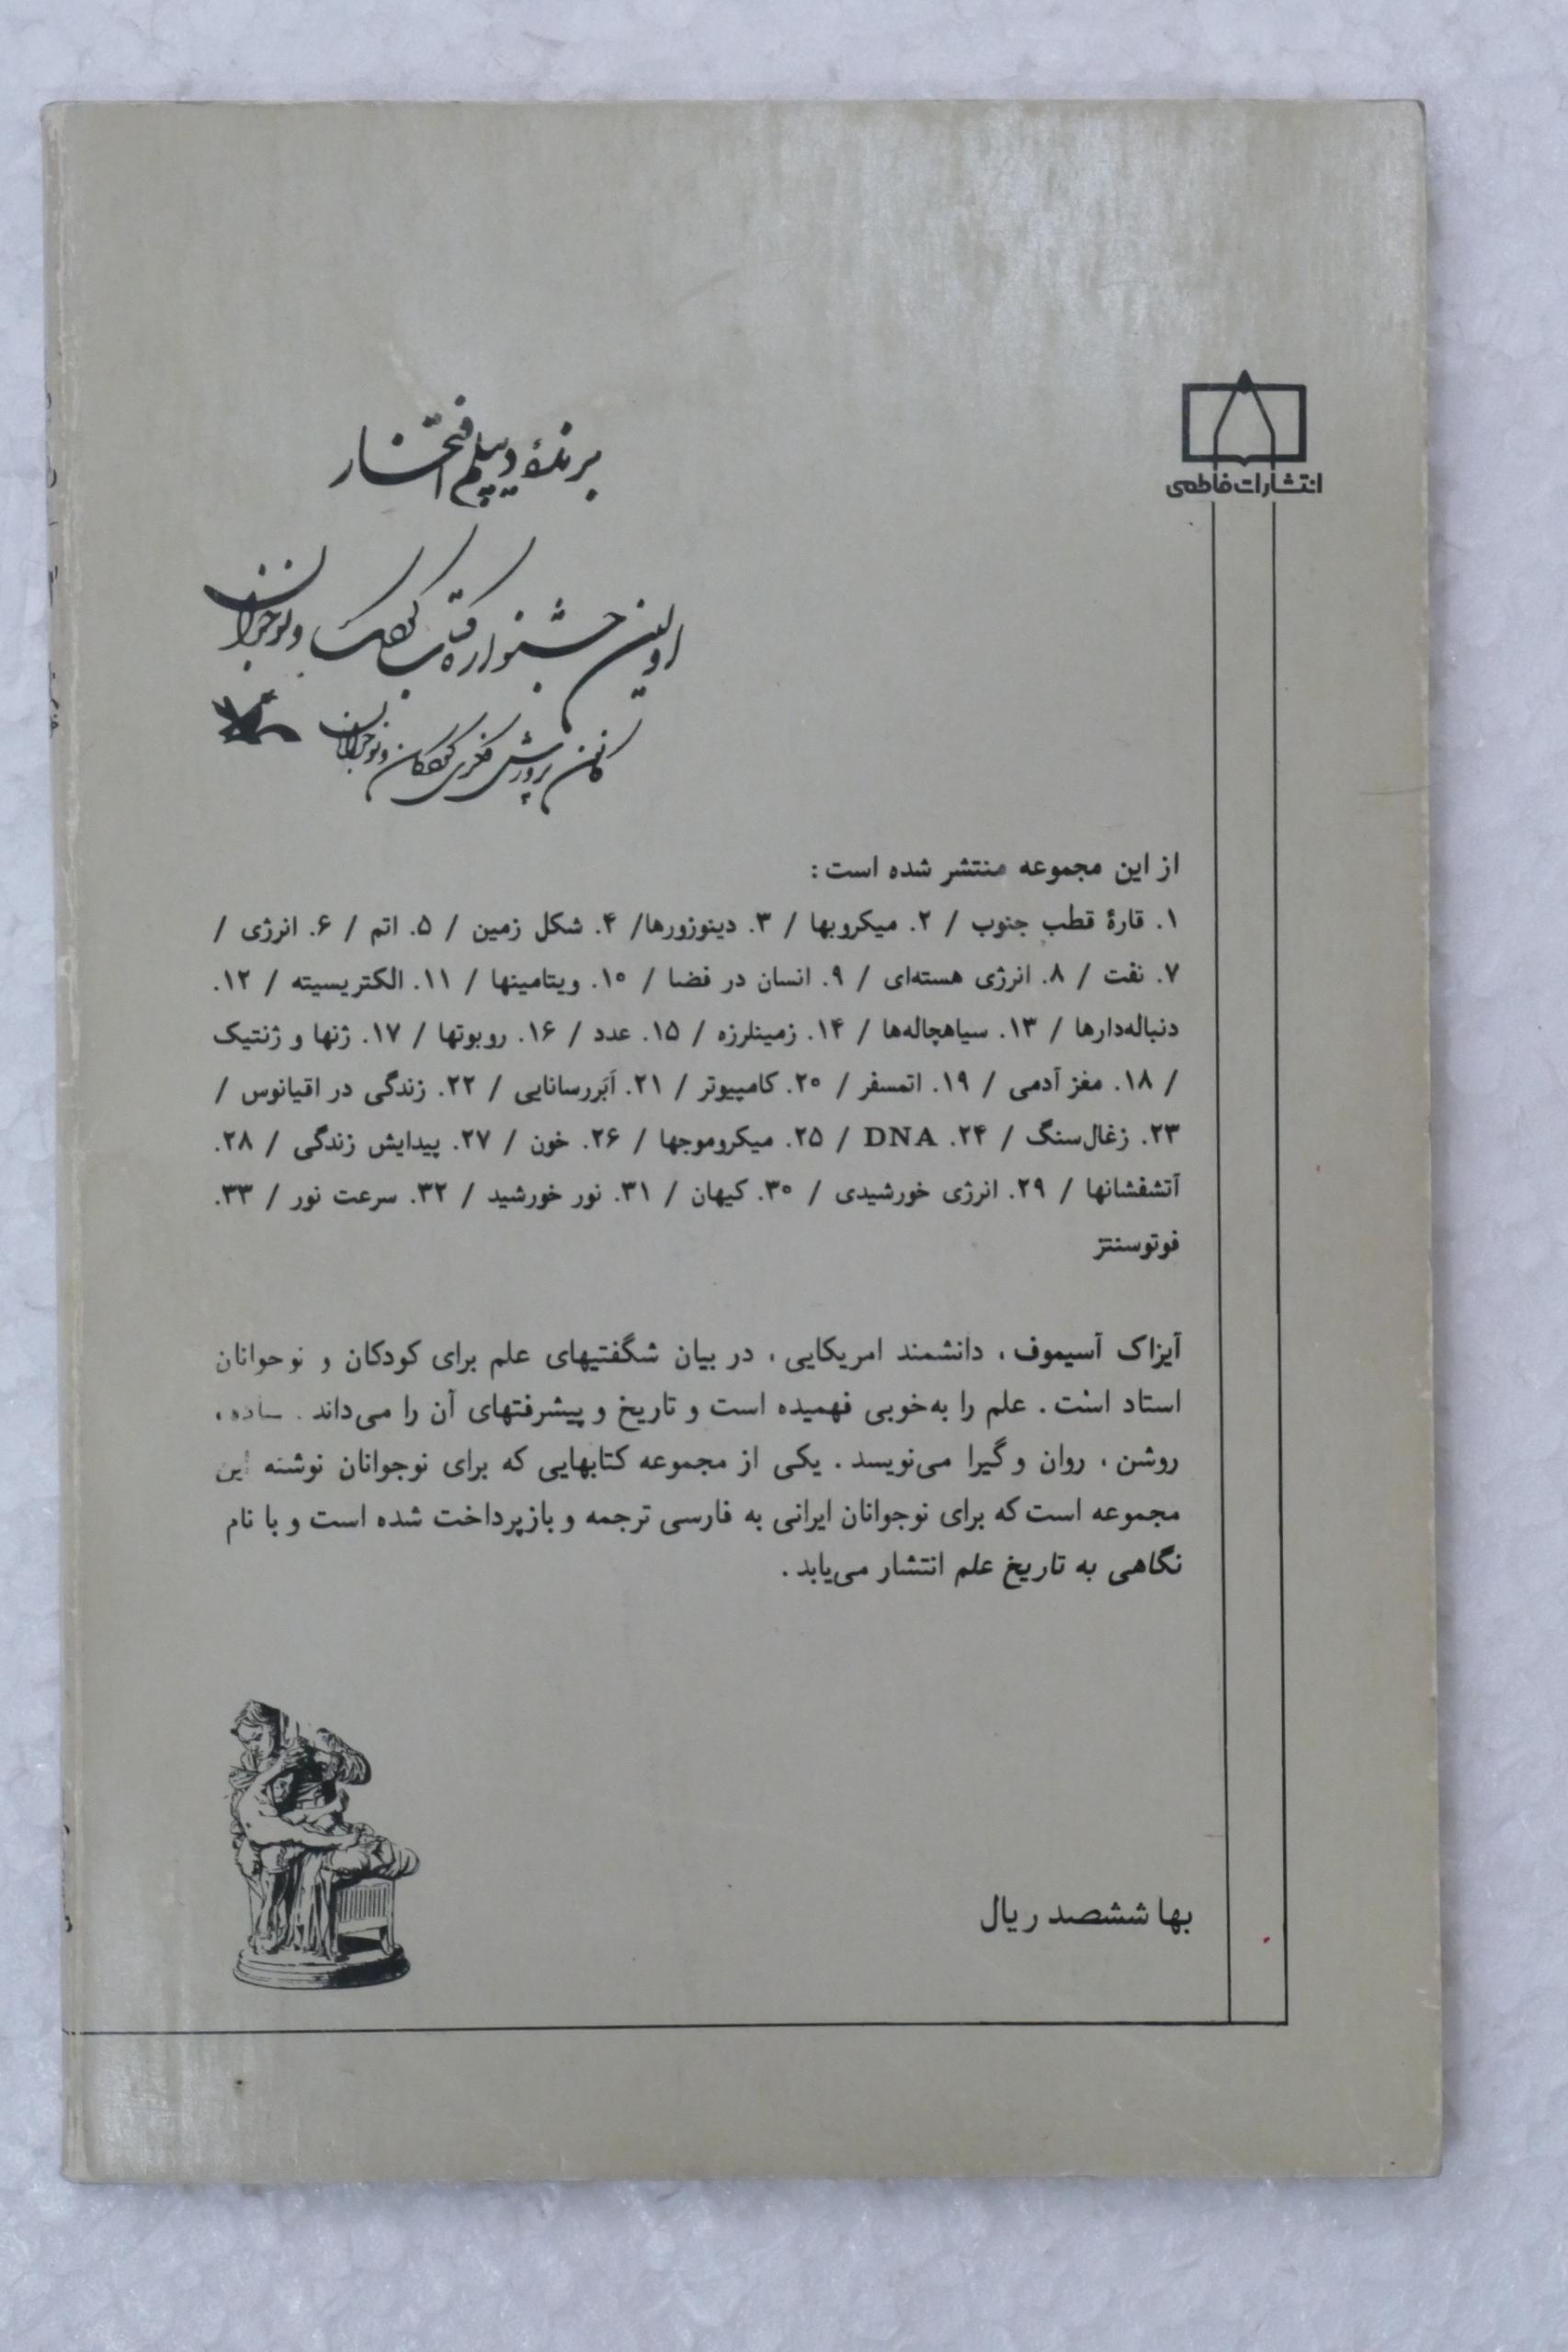 انتشارات فاطمی
برندهٔ دیپلم افتخار
اولین جشنواره کتاب کودک و نوجوان
کانون پرورش فکری کودکان و نوجوانان
از این مجموعه منتشر شده است :
۱. قارهٔ قطب جنوب / ۲. میکروبها / ۳. دینوزورها/ ۴. شکل زمین / ۵. اتم / ۶. انرژی /
۷. نفت / ۸. انرژی هسته‌ای / ۹. انسان در فضا / ۱۰. ویتامینها / ۱۱. الکتریسیته / ۱۲.
دنباله‌دارها / ۱۳. سیاهچاله‌ها / ۱۴. زمینلرزه / ۱۵. عدد / ۱۶. روبوتها / ۱۷. ژنها و ژنتیک
/ ۱۸. مغز آدمی / ۱۹. اتمسفر / ۲۰. کامپیوتر / ۲۱. اَبَررسانایی / ۲۲. زندگی در اقیانوس /
۲۳. زغال‌سنگ / ۲۴. DNA / ۲۵. میکروموجها / ۲۶. خون / ۲۷. پیدایش زندگی / ۲۸.
آتشفشانها / ۲۹. انرژی خورشیدی / ۳۰. کیهان / ۳۱. نور خورشید / ۳۲. سرعت نور / ۳۳.
فوتوسنتز
آیزاک آسیموف ، دانشمند امریکایی ، در بیان شگفتیهای علم برای کودکان و نوجوانان
استاد است . علم را به‌خوبی فهمیده است و تاریخ و پیشرفتهای آن را می‌داند . ساده ،
روشن ، روان و گیرا می‌نویسد . یکی از مجموعه کتابهایی که برای نوجوانان نوشته این
مجموعه است که برای نوجوانان ایرانی به فارسی ترجمه و بازپرداخت شده است و با نام
نگاهی به تاریخ علم انتشار می‌یابد .
بها ششصد ریال